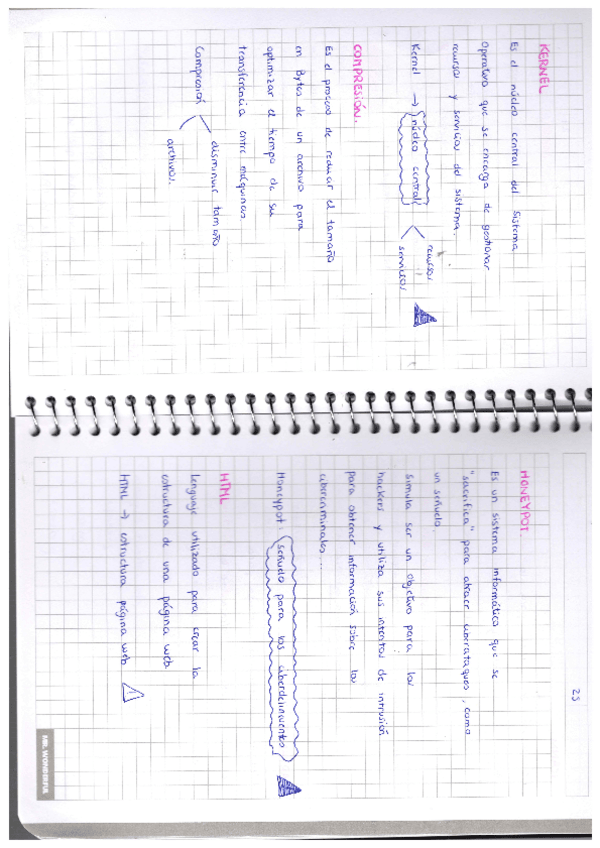 KERNEL
Es el núcleo central del Sistema
Operativo que se encarga de gestionar
recursos y servicios del sistema.
Kernel → núcleo central
recursos
servicios
COMPRESIÓN.
Es el proceso de reducir el tamaño
en Bytes de un archivo para
optimizar el tiempo de su
transferencia entre máquinas.
Compresión
disminuir tamaño
archivos.
25
HONEYPOT.
Es un sistema informático que se
"sacrifica" para atraer ciberataques, como
un señuelo.
Simula ser un objetivo para los
hackers y utiliza sus intentos de intrusión
para obtener información sobre los
cibercriminales...
Honeypot: señuelo para los ciberdelincuentes
HTML
Lenguaje utilizado para crear la
estructura de una página web
HTML → estructura página web
MR. WONDERFUL